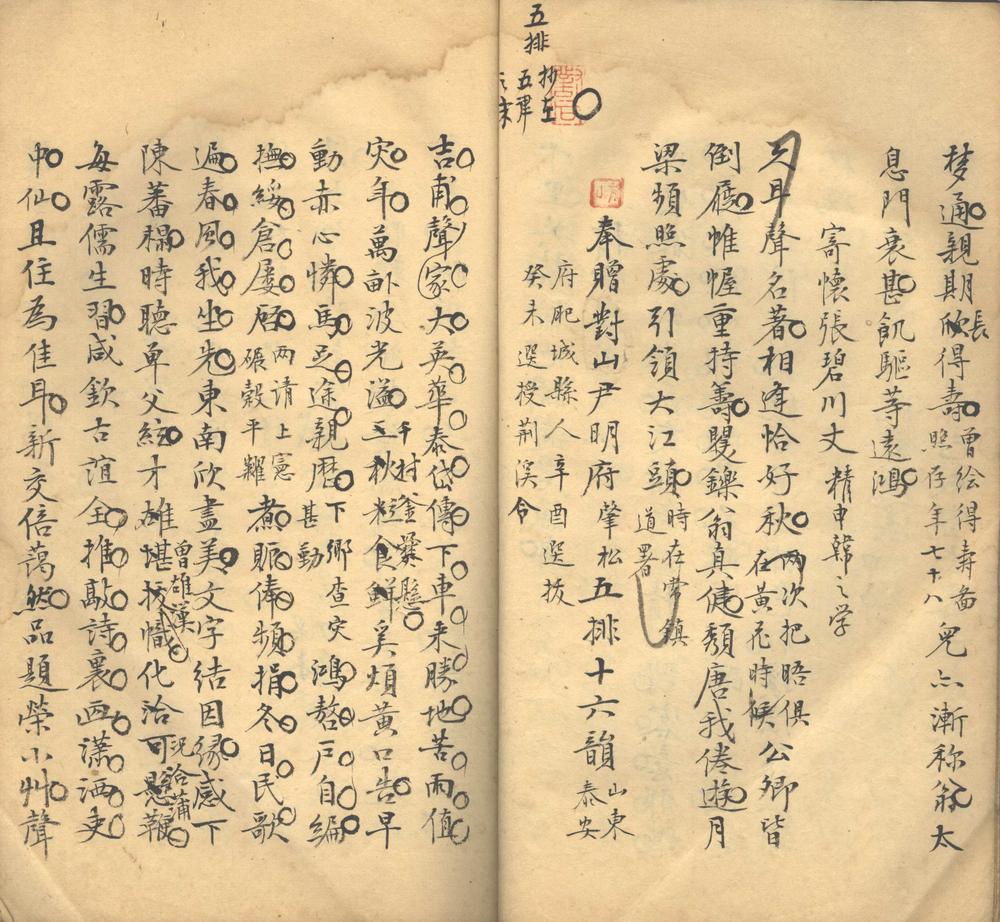 梦通親期欣長得壽曾绘得寿畨照存年七十八兒亦漸称翁太
息門衰甚飢驅荨遠鴻
寄懷張碧川丈精申韓之学
久耳聲名著相逢恰好秋两次把晤俱在黄花時候公卿皆
倒屣帷幄重持籌矍鑠翁真健頹唐我倦遊月
梁頻照處引領大江頭時在常鎮道署
五排抄在五律之末
奉贈對山尹明府肇松五排十六韻山東泰安
府肥城縣人辛酉選拔
癸未選授荆溪令
吉甫聲家大英華泰岱傳下車来勝地苦雨值
灾年萬畝波光溢千村釜爨懸三秋粒食鮮奚煩黄口告早
動赤心憐馬足途親曆下鄉查灾甚勤鴻嗸戶自編
撫綏倉屢啟两请上憲碾穀平糶煮赈俸頻捐冬日民歌
遍春風我坐先東南欣盡美文字结因緣感下
陳蕃榻時聽单父絃才雄堪拔幟化洽可懸鞭
每露儒生習咸欽古誼全推敲詩裏画潇洒吏
中仙且住為佳耳新交倍藹然品題榮小艸聲